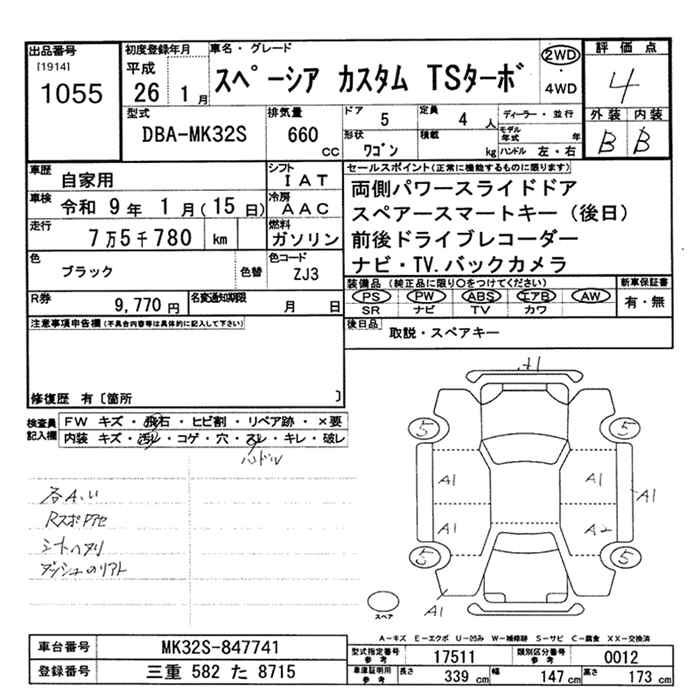 出品番号
[1914]
1055
初度登録年月
平成
26 1月
車名・グレード
スペーシア カスタム TSターボ
2WD
・
4WD
評価点
4
外装 内装
B B
型式
DBA-MK32S
排気量
660 cc
ドア 5
定員 4 人
ディーラー・並行
形状 ワゴン
積載 kg
モデル年式 年
ハンドル 左・右
車歴 自家用
シフト IAT
車検 令和 9年 1月(15日)
冷房 AAC
走行 7万5千780 km
燃料 ガソリン
色 ブラック 色替
色コード ZJ3
R券 9,770円
名変通知期限 月 日
セールスポイント(正常に機能するものに限ります)
両側パワースライドドア
スペアースマートキー(後日)
前後ドライブレコーダー
ナビ・TV.バックカメラ
装備品(純正品に限り○をつけてください)
PS PW ABS エアB AW
SR ナビ TV カワ
新車保証書
有・無
後日品 取説・スペアキー
注意事項申告欄(不具合内容等は具体的に記入して下さい)
修復歴 有〔箇所 〕
検査員記入欄
FW キズ・飛石・ヒビ割・リペア跡・×要
内装 キズ・汚レ・コゲ・穴・スレ・キレ・破レ
ハンドル
各A.U
シートヘタリ
A1
5 5
A1 A1
A1
A1 A2
5 5
A1
スペア
A-キズ E-エクボ U-凹み W-補修跡 S-サビ C-腐食 XX-交換済
車台番号 MK32S-847741
登録番号 三重 582 た 8715
型式指定番号 参考 17511
類別区分番号 参考 0012
車庫証明用 参考 長さ 339 cm 幅 147 cm 高さ 173 cm